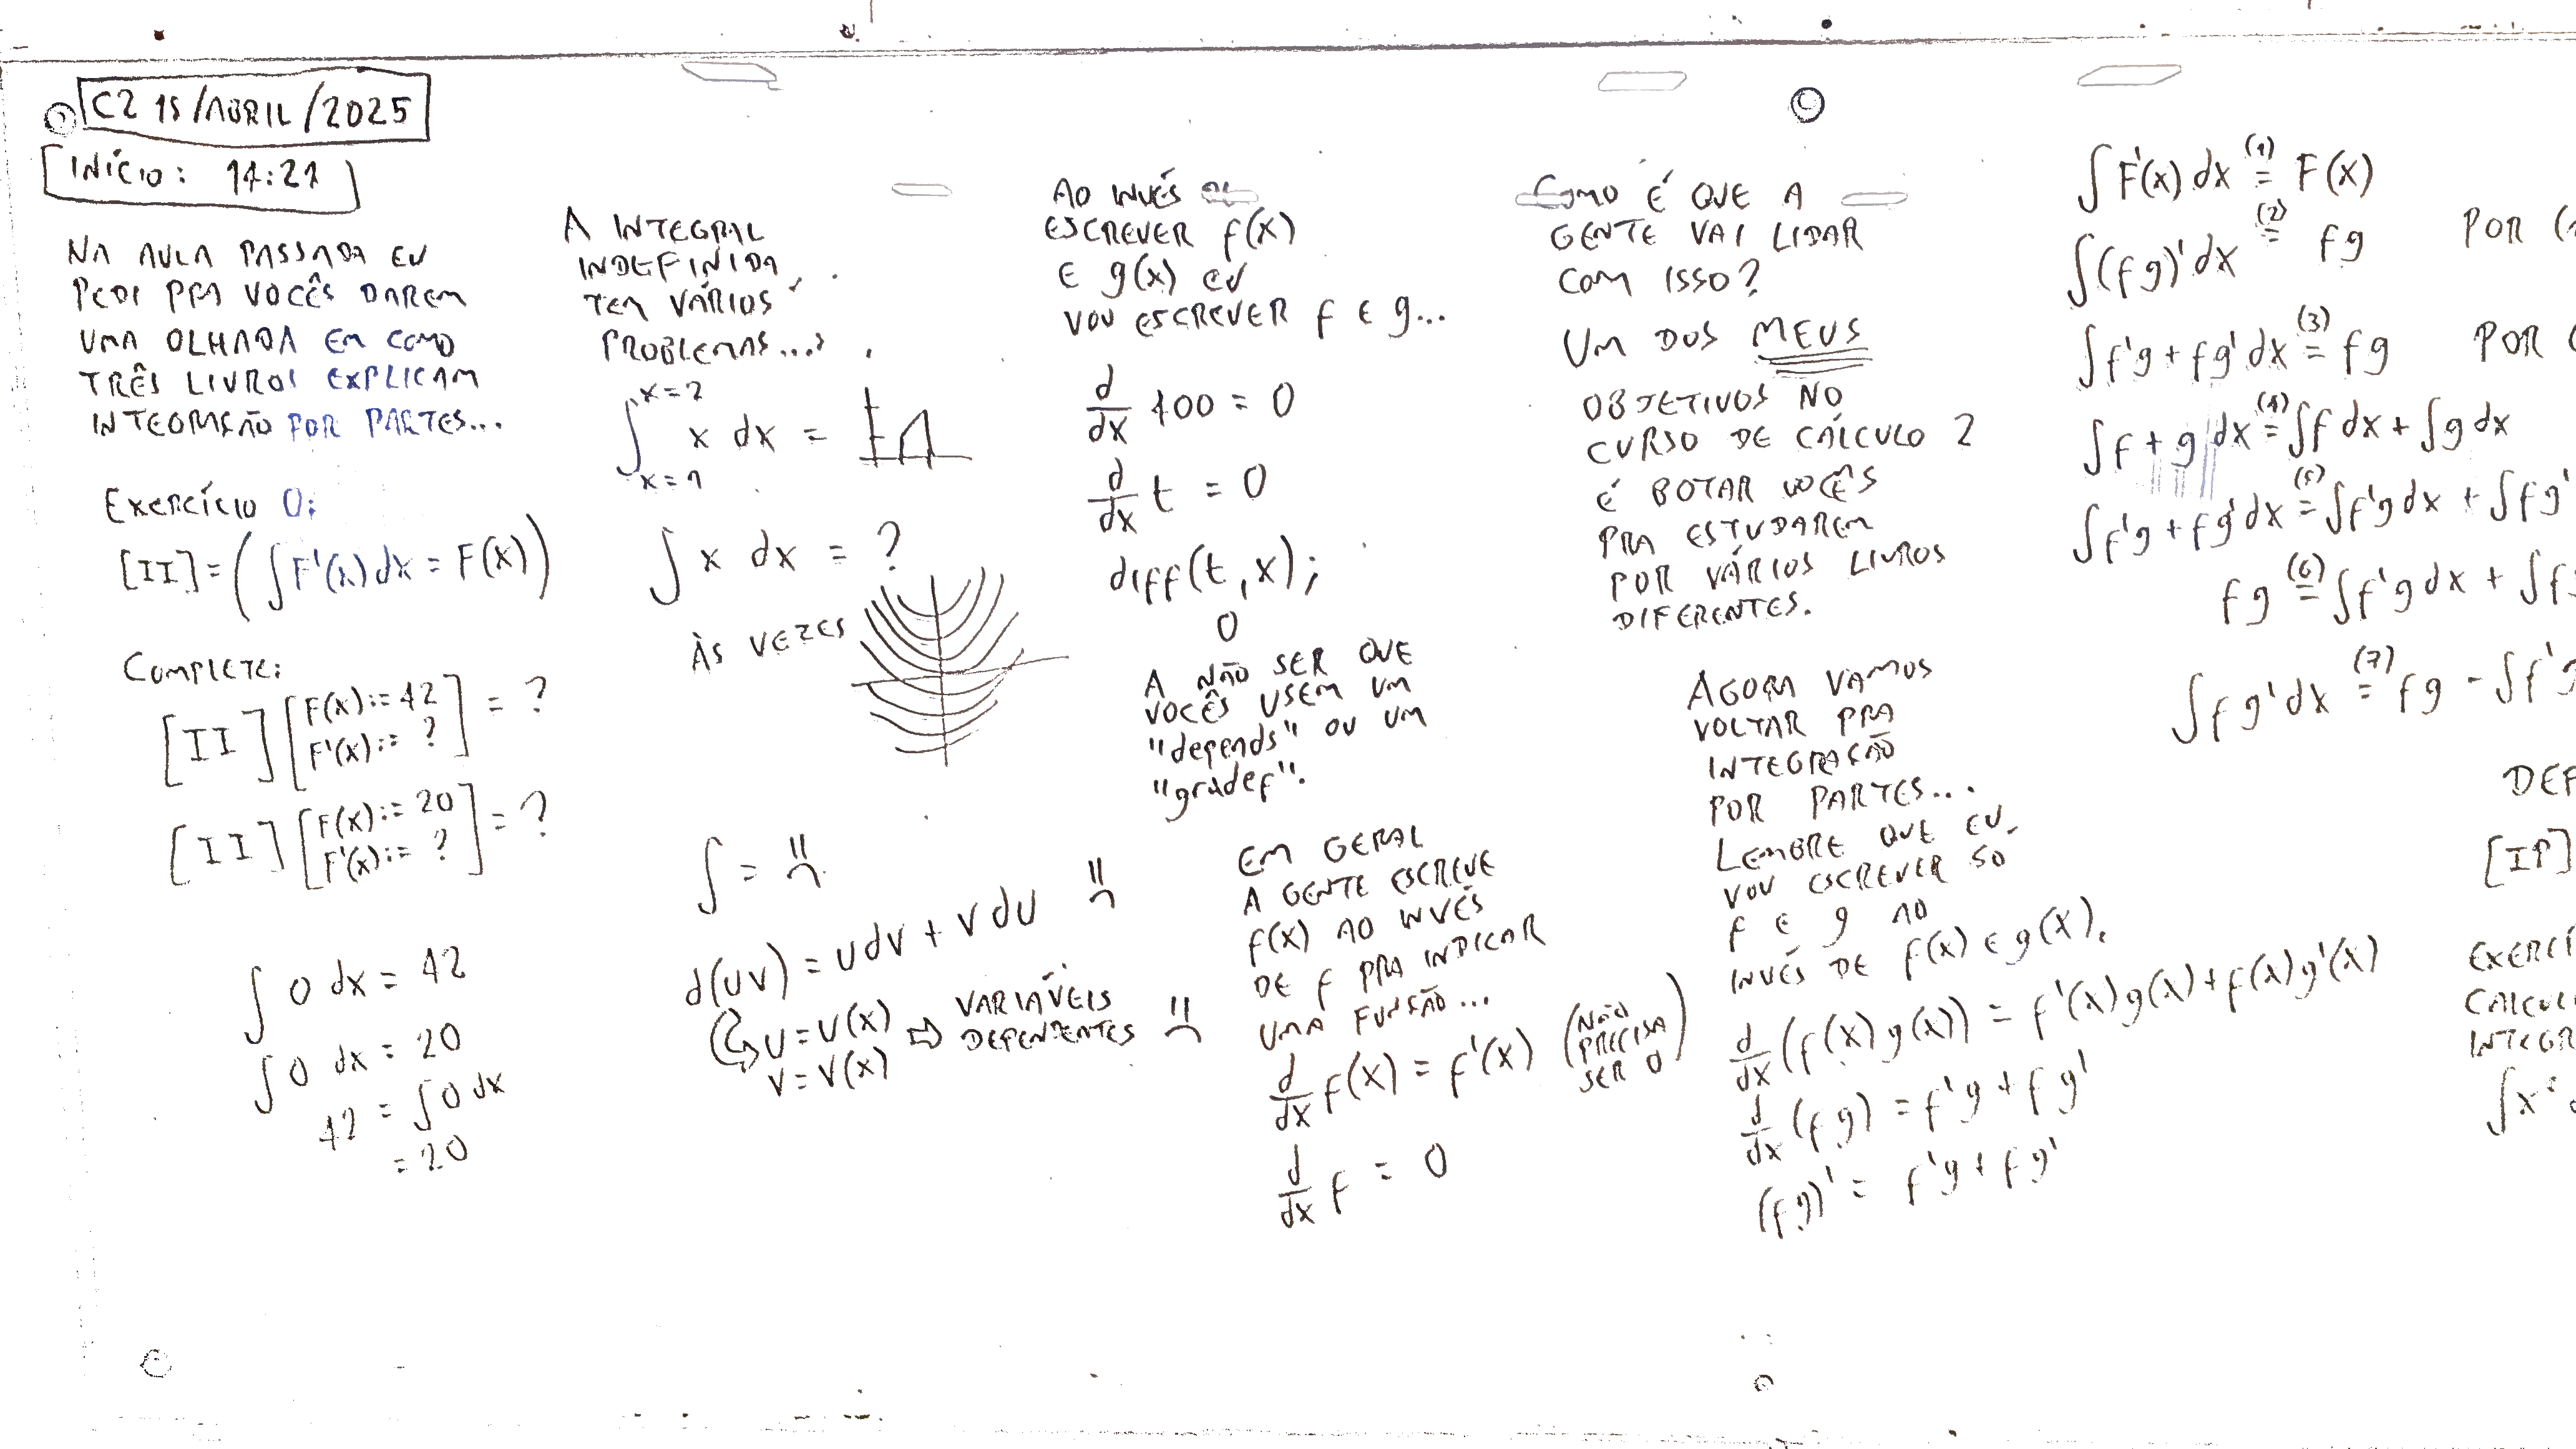 C2 15/ABRIL/2025
INÍCIO: 14:21
NA AULA PASSADA EU
PEDI PRA VOCÊS DAREM
UMA OLHADA EM COMO
TRÊS LIVROS EXPLICAM
INTEGRAÇÃO POR PARTES...
EXERCÍCIO 0:
[II] = (∫F'(x) dx = F(x))
COMPLETE:
[II] [F(x) := 42
F'(x) := ?] = ?
[II] [F(x) := 20
F'(x) := ?] = ?
∫ 0 dx = 42
∫ 0 dx = 20
42 = ∫ 0 dx
= 20
A INTEGRAL
INDEFINIDA
TEM VÁRIOS
PROBLEMAS...
∫_{x=1}^{x=2} x dx =
∫ x dx = ?
ÀS VEZES
∫ =
d(uv) = u dv + v du
u = u(x) ⇒ VARIÁVEIS
v = v(x) DEPENDENTES
AO INVÉS DE
ESCREVER f(x)
E g(x) EU
VOU ESCREVER f E g...
d/dx 100 = 0
d/dx t = 0
diff(t,x);
0
A NÃO SER QUE
VOCÊS USEM UM
"depends" OU UM
"gradef".
EM GERAL
A GENTE ESCREVE
f(x) AO INVÉS
DE f PRA INDICAR
UMA FUNÇÃO...
d/dx f(x) = f'(x) (NÃO
PRECISA
SER 0)
d/dx f = 0
COMO É QUE A
GENTE VAI LIDAR
COM ISSO?
UM DOS MEUS
OBJETIVOS NO
CURSO DE CÁLCULO 2
É BOTAR VOCÊS
PRA ESTUDAREM
POR VÁRIOS LIVROS
DIFERENTES.
AGORA VAMOS
VOLTAR PRA
INTEGRAÇÃO
POR PARTES...
LEMBRE QUE EU
VOU ESCREVER SÓ
f E g AO
INVÉS DE f(x) E g(x).
d/dx (f(x) g(x)) = f'(x)g(x) + f(x)g'(x)
d/dx (fg) = f'g + fg'
(fg)' = f'g + fg'
∫F'(x) dx (1)= F(x)
∫(fg)' dx (2)= fg POR (
∫f'g + fg' dx (3)= fg POR (
∫f + g dx (4)= ∫f dx + ∫g dx
∫f'g + fg' dx (5)= ∫f'g dx + ∫fg'
fg (6)= ∫f'g dx + ∫f
∫fg' dx (7)= fg - ∫f'g
DEF
[IP]
EXERCÍ
CALCUL
INTEGR
∫x²